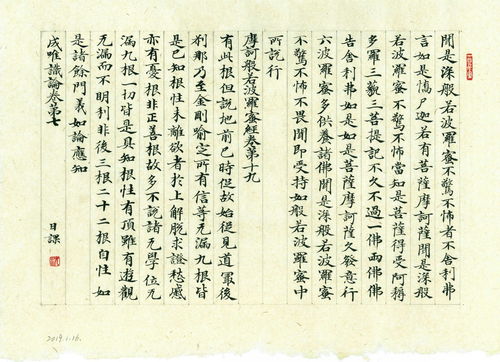 聞是深般若波羅蜜不驚不怖者不舍利弗
言如是憍尸迦若有菩薩摩訶薩聞是深般
若波羅蜜不驚不怖當知是菩薩得受阿耨
多羅三藐三菩提記不久不過一佛兩佛佛
告舍利弗如是如是菩薩摩訶薩久發意行
六波羅蜜多供養諸佛聞是深般若波羅蜜
不驚不怖不畏聞即受持如般若波羅蜜中
所說行
摩訶般若波羅蜜經卷第十九
有此根但說地前已時促故始從見道最後
刹那乃至金剛喻定所有信等无漏九根皆
是已知根性未離欲者於上解脫求證愁慼
亦有憂根非正善根故多不說諸无學位无
漏九根一切皆是具知根性有頂雖有遊觀
无漏而不明利非後三根二十二根自性如
是諸餘門義如論應知
成唯識論卷第七
日課
2019.1.16.